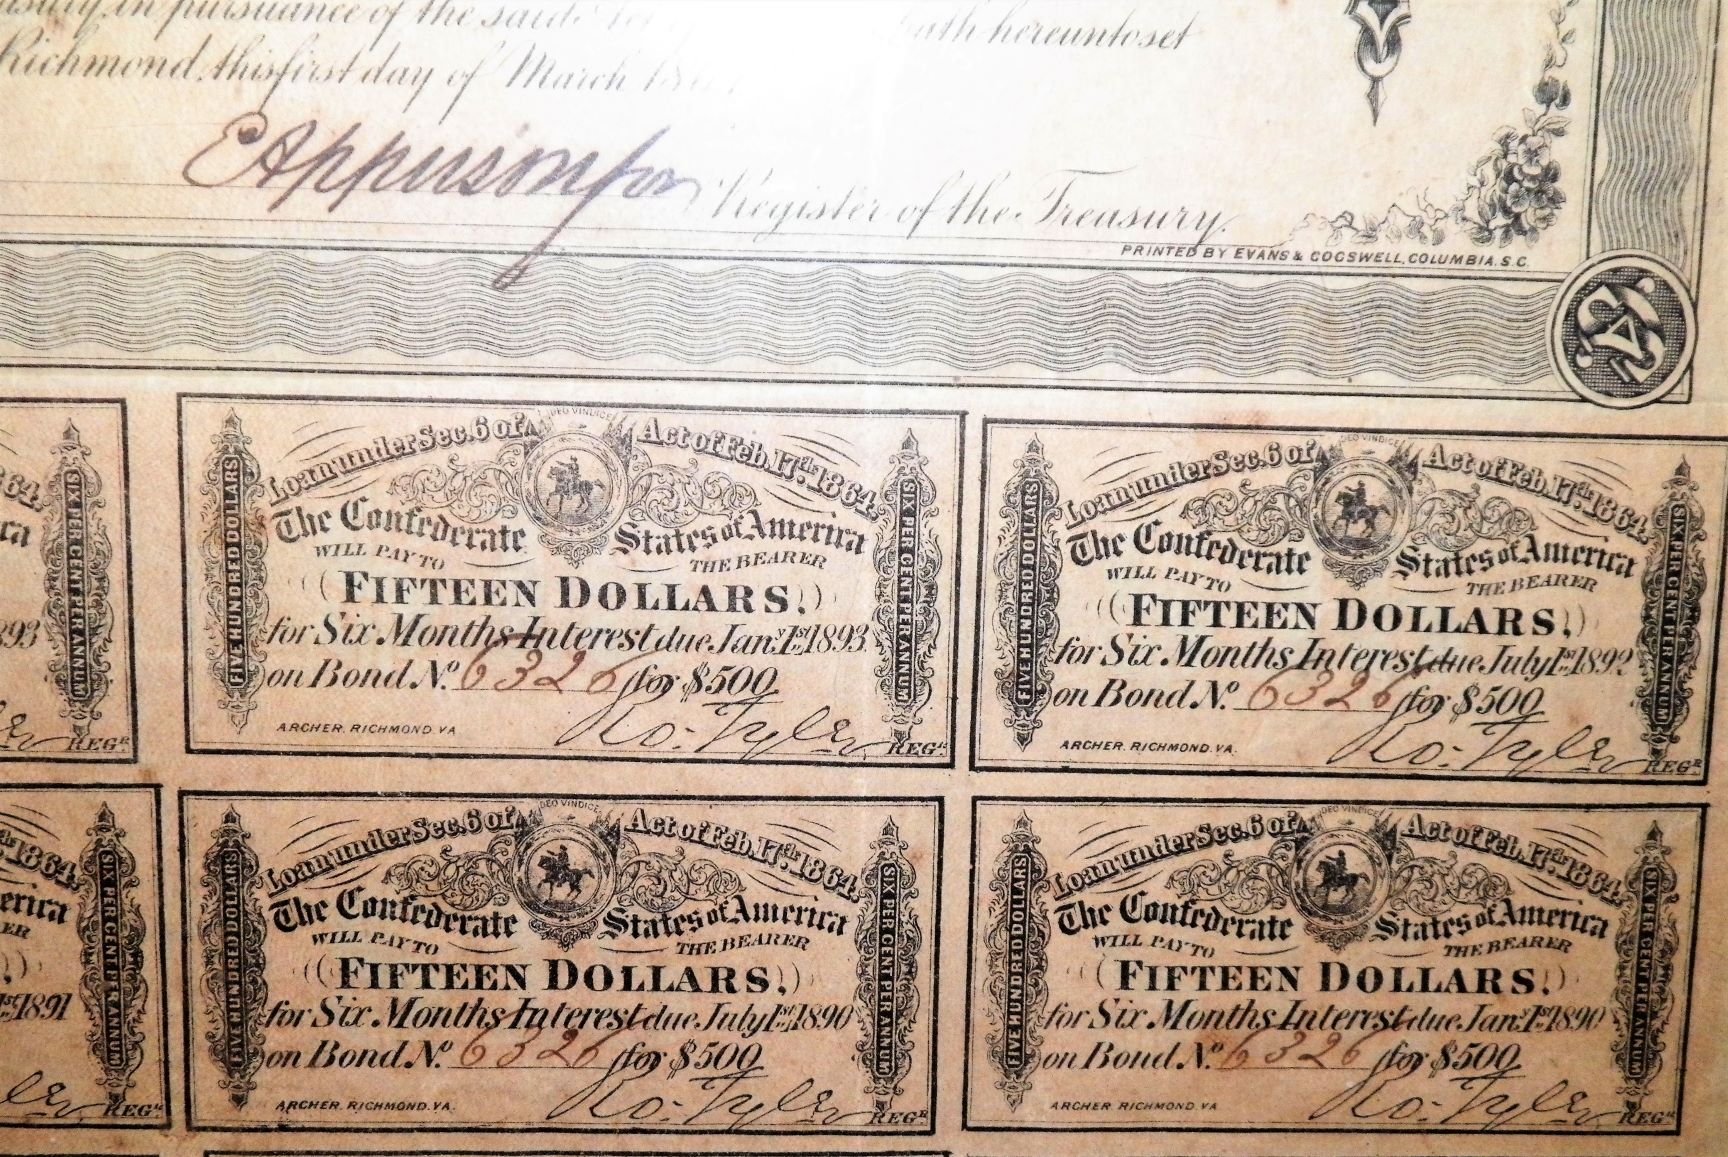 in pursuance of the said hereunto set
Richmond, this first day of March
E Apperson for Register of the Treasury.
PRINTED BY EVANS & COGSWELL, COLUMBIA, S.C.
64.
SIX PER CENT PER ANNUM
REGR
DEO VINDICE
Loan under Sec. 6 of Act of Feb. 17th 1864.
FIVE HUNDRED DOLLARS
The Confederate States of America
WILL PAY TO THE BEARER
FIFTEEN DOLLARS,
for Six Months Interest due Jany. 1st 1893
on Bond No. 6326 for $500
ARCHER. RICHMOND. VA
Ro. Tyler REGR
SIX PER CENT PER ANNUM
DEO VINDICE
Loan under Sec. 6 of Act of Feb. 17th 1864.
FIVE HUNDRED DOLLARS
The Confederate States of America
WILL PAY TO THE BEARER
FIFTEEN DOLLARS,
for Six Months Interest due July 1st 1892
on Bond No. 6326 for $500
ARCHER. RICHMOND. VA.
Ro. Tyler REGR
SIX PER CENT PER ANNUM
1864.
1st 1891
SIX PER CENT PER ANNUM
REGR
DEO VINDICE
Loan under Sec. 6 of Act of Feb. 17th 1864.
FIVE HUNDRED DOLLARS
The Confederate States of America
WILL PAY TO THE BEARER
FIFTEEN DOLLARS,
for Six Months Interest due July 1st 1890
on Bond No. 6326 for $500
ARCHER. RICHMOND. VA.
Ro. Tyler REGR
SIX PER CENT PER ANNUM
DEO VINDICE
Loan under Sec. 6 of Act of Feb. 17th 1864.
FIVE HUNDRED DOLLARS
The Confederate States of America
WILL PAY TO THE BEARER
FIFTEEN DOLLARS,
for Six Months Interest due Jany. 1st 1890
on Bond No. 6326 for $500
ARCHER. RICHMOND. VA
Ro. Tyler REGR
SIX PER CENT PER ANNUM